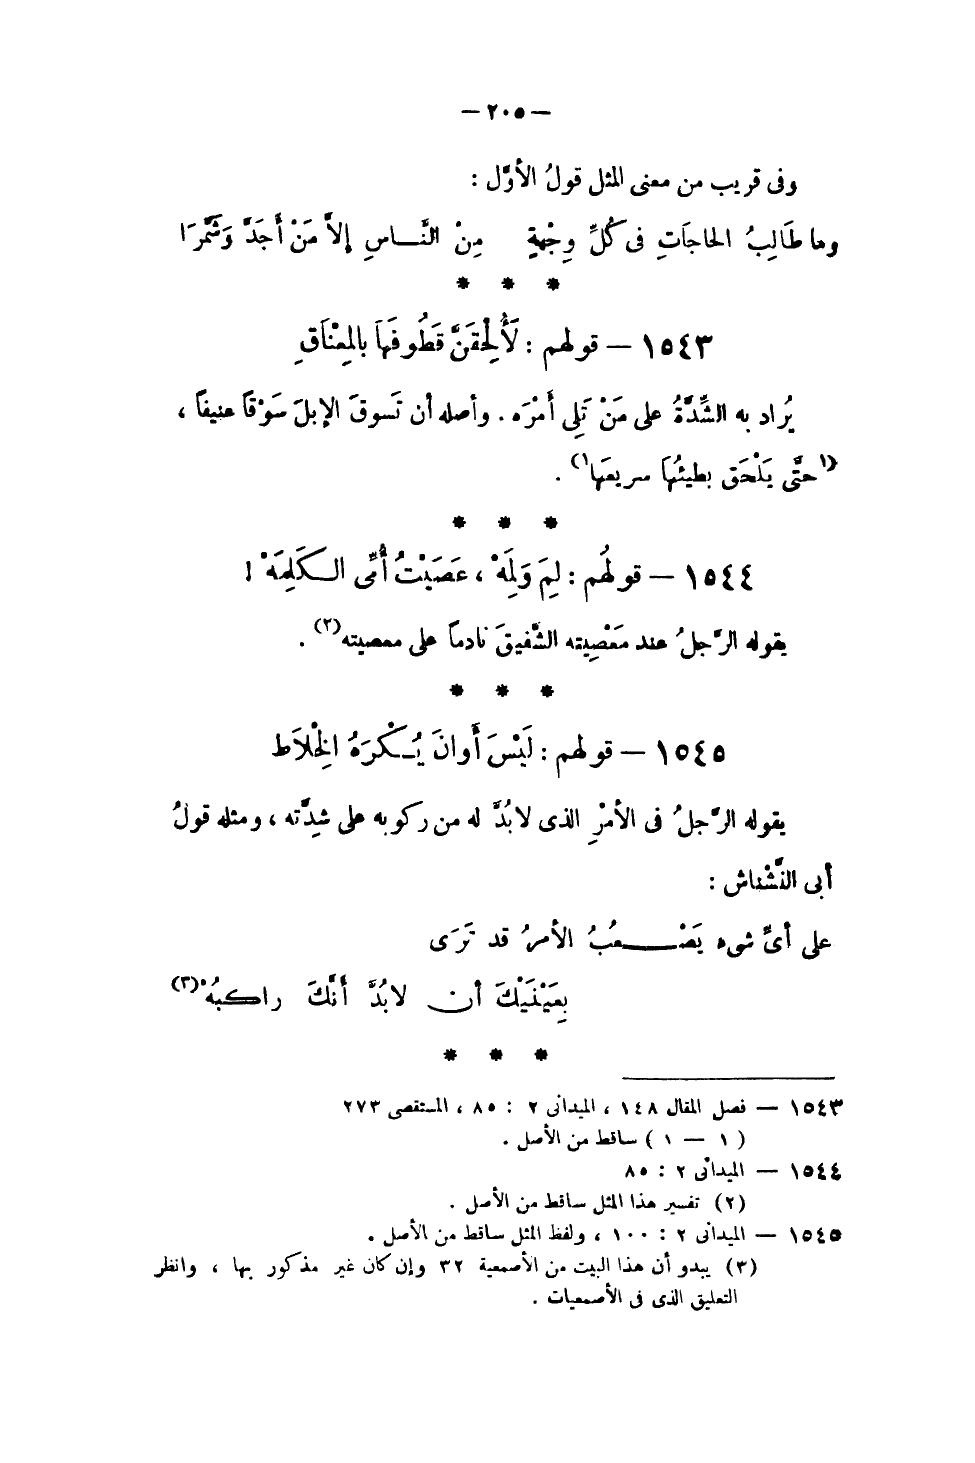 — ٢٠٥ —
وفى قريب من معنى المثل قولُ الأوَّل :
وما طَالِبُ الحاجَاتِ فى كُلِّ وِجْهةٍ مِنْ النَّاسِ إلاَّ مَنْ أَجَدَّ وَشَمَّرَا
* * *
١٥٤٣ — قولهم : لَأُلْحِقَنَّ قَطُوفَهَا بالمِعْنَاقِ
يُراد به الشِّدَّةُ على مَنْ تَلِى أَمْرَه . وأصله أن تَسوقَ الإبلَ سَوْقاً عنيفاً ،
(١حتَّى يَلْحَق بطيئُها سريعَها١) .
* * *
١٥٤٤ — قولُهم : لِمَ وَلِمَهْ ، عَصَيْتُ أُمِّى الكَلِمَهْ !
يقوله الرَّجلُ عند مَعْصِيته الشَّفيقَ نادماً على معصيته(٢) .
* * *
١٥٤٥ — قولهم : لَيْسَ أَوانَ يُكْرَهُ الخِلَاط
يقوله الرَّجلُ فى الأمْرِ الذى لابُدَّ له من ركوبه على شدِّته ، ومثله قولُ
أبى النَّشْناش :
على أىِّ شىء يَصْعُبُ الأمرُ قد تَرَى
بِعَيْنَيْكَ أن لابُدَّ أَنَّكَ راكبُهْ(٣)
* * *
١٥٤٣ — فصل المقال ١٤٨ ، الميدانى ٢ : ٨٥ ، المستقصى ٢٧٣
( ١ — ١ ) ساقط من الأصل .
١٥٤٤ — الميدانى ٢ : ٨٥
(٢) تفسير هذا المثل ساقط من الأصل .
١٥٤٥ — الميدانى ٢ : ١٠٠ ، ولفظ المثل ساقط من الأصل .
(٣) يبدو أن هذا البيت من الأصمعية ٣٢ وإن كان غير مذكور بها ، وانظر
التعليق الذى فى الأصمعيات .